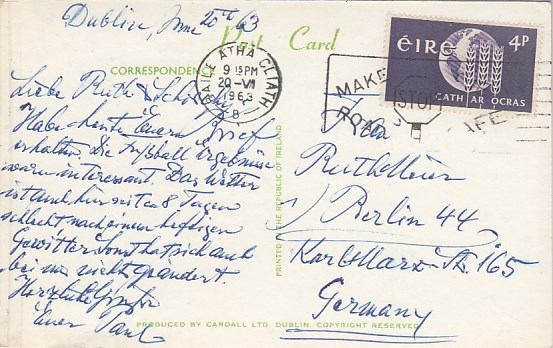 Dublin, June 20th 63
Post Card
CORRESPONDENCE
BAILE ATHA CLIATH
9 15PM
20-VI
1963
B
MAKE
ROAD
STOP
SAFE
ÉIRE 4P
CATH AR OCRAS
Liebe Ruth
Habe heute Euern Brief
erhalten. Die Fußball Ergebnisse
waren interessant. Das Wetter
ist auch hier seit 8 Tagen
schlecht nach einem heftigen
Gewitter sonst hat sich auch
bei uns nicht geändert.
Herzliche Grüße
Euer Paul
Ruth Meier
Berlin 44
Karl Marx-Str. 165
Germany
PRINTED IN THE REPUBLIC OF IRELAND
PRODUCED BY CARDALL LTD. DUBLIN. COPYRIGHT RESERVED